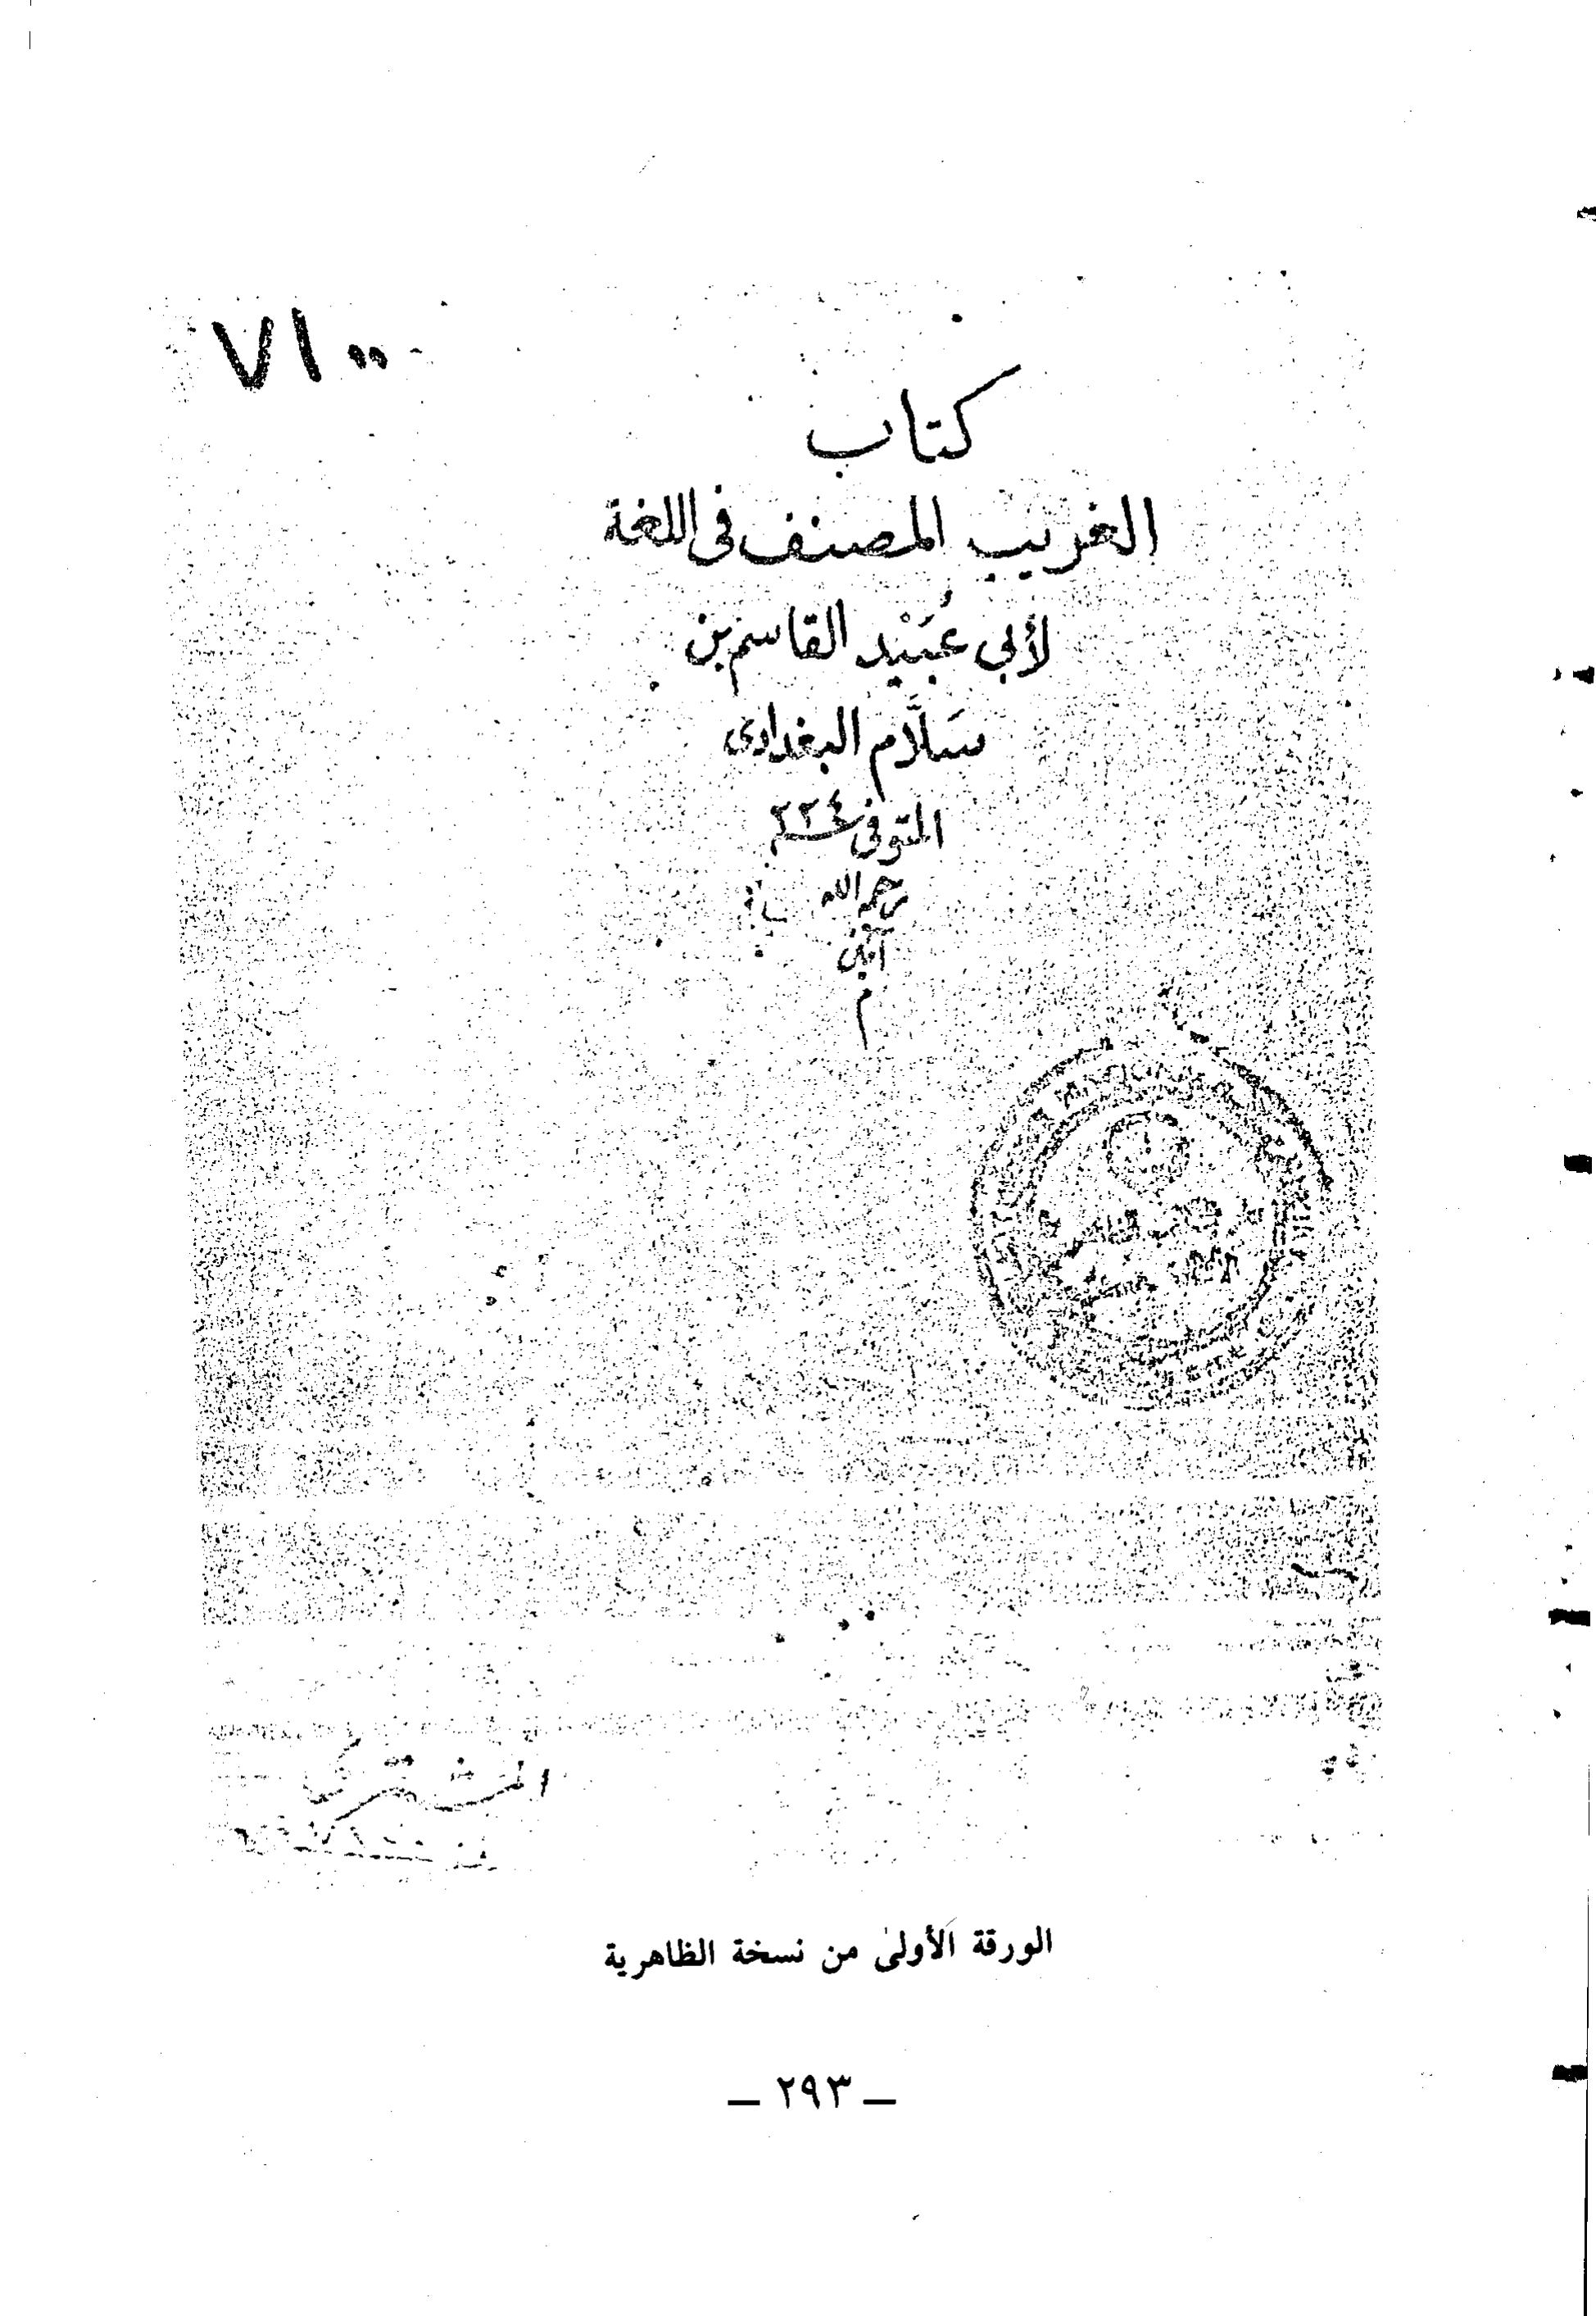 ٧١٠٠
كتاب
الغريب المصنف فى اللغة
لأبي عُبَيْد القاسم بن
سَلَّام البغدادى
المتوفى سنة ٢٢٤
رحمه الله
آمين
م
الورقة الأولى من نسخة الظاهرية
— ٢٩٣ —